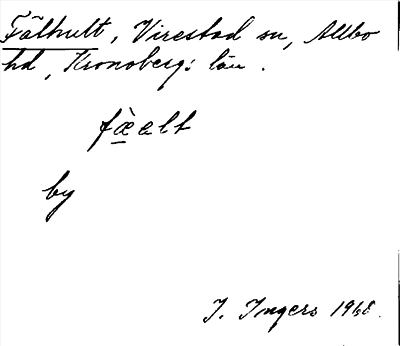 Fälhult, Virestad sn, Allbo
hd, Kronoberg: län.
fæ̀alt
by
I. Ingers 1968.